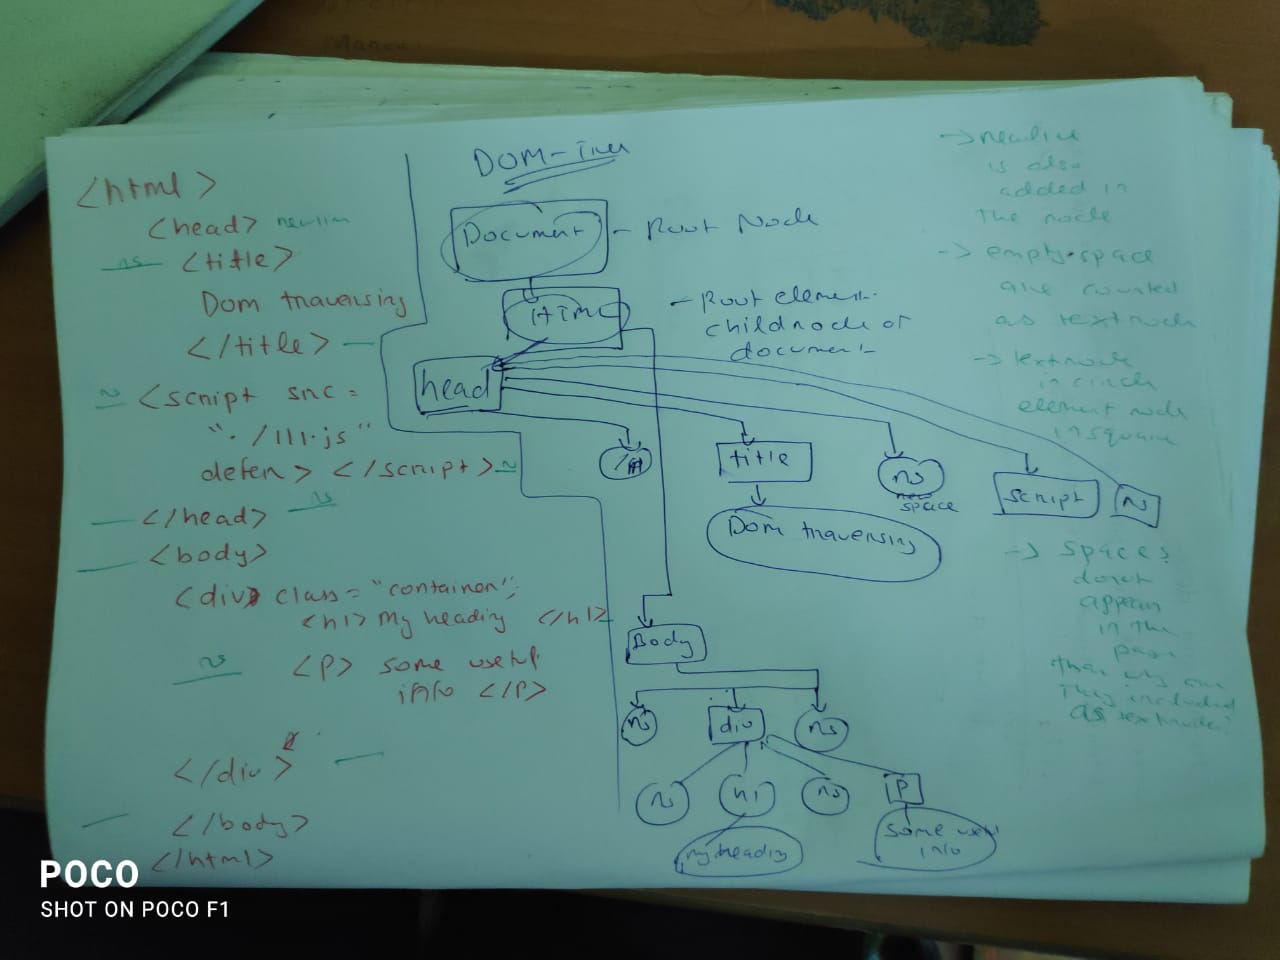 <html>
<head> newline
ns <title>
Dom traversing
</title>
ns <script src =
"./111.js"
defer> </script> ns
ns
</head>
<body>
<div> class = "container";
<h1> My heading </h1>
ns <p> some useful
info </p>
</div>
</body>
</html>
DOM-Tree
Document - Root Node
HTML - Root element.
childnode of
document
head
title
ns
new
space
script
ns
Dom traversing
Body
ns div ns
ns h1 ns P
my heading
some useful
info
-> newline
is also
added in
the node
-> empty space
are counted
as textnode
-> textnode
in circle
element node
in square
-> spaces
donot
appear
in the
page
than why are
they included
as textnode?
POCO
SHOT ON POCO F1